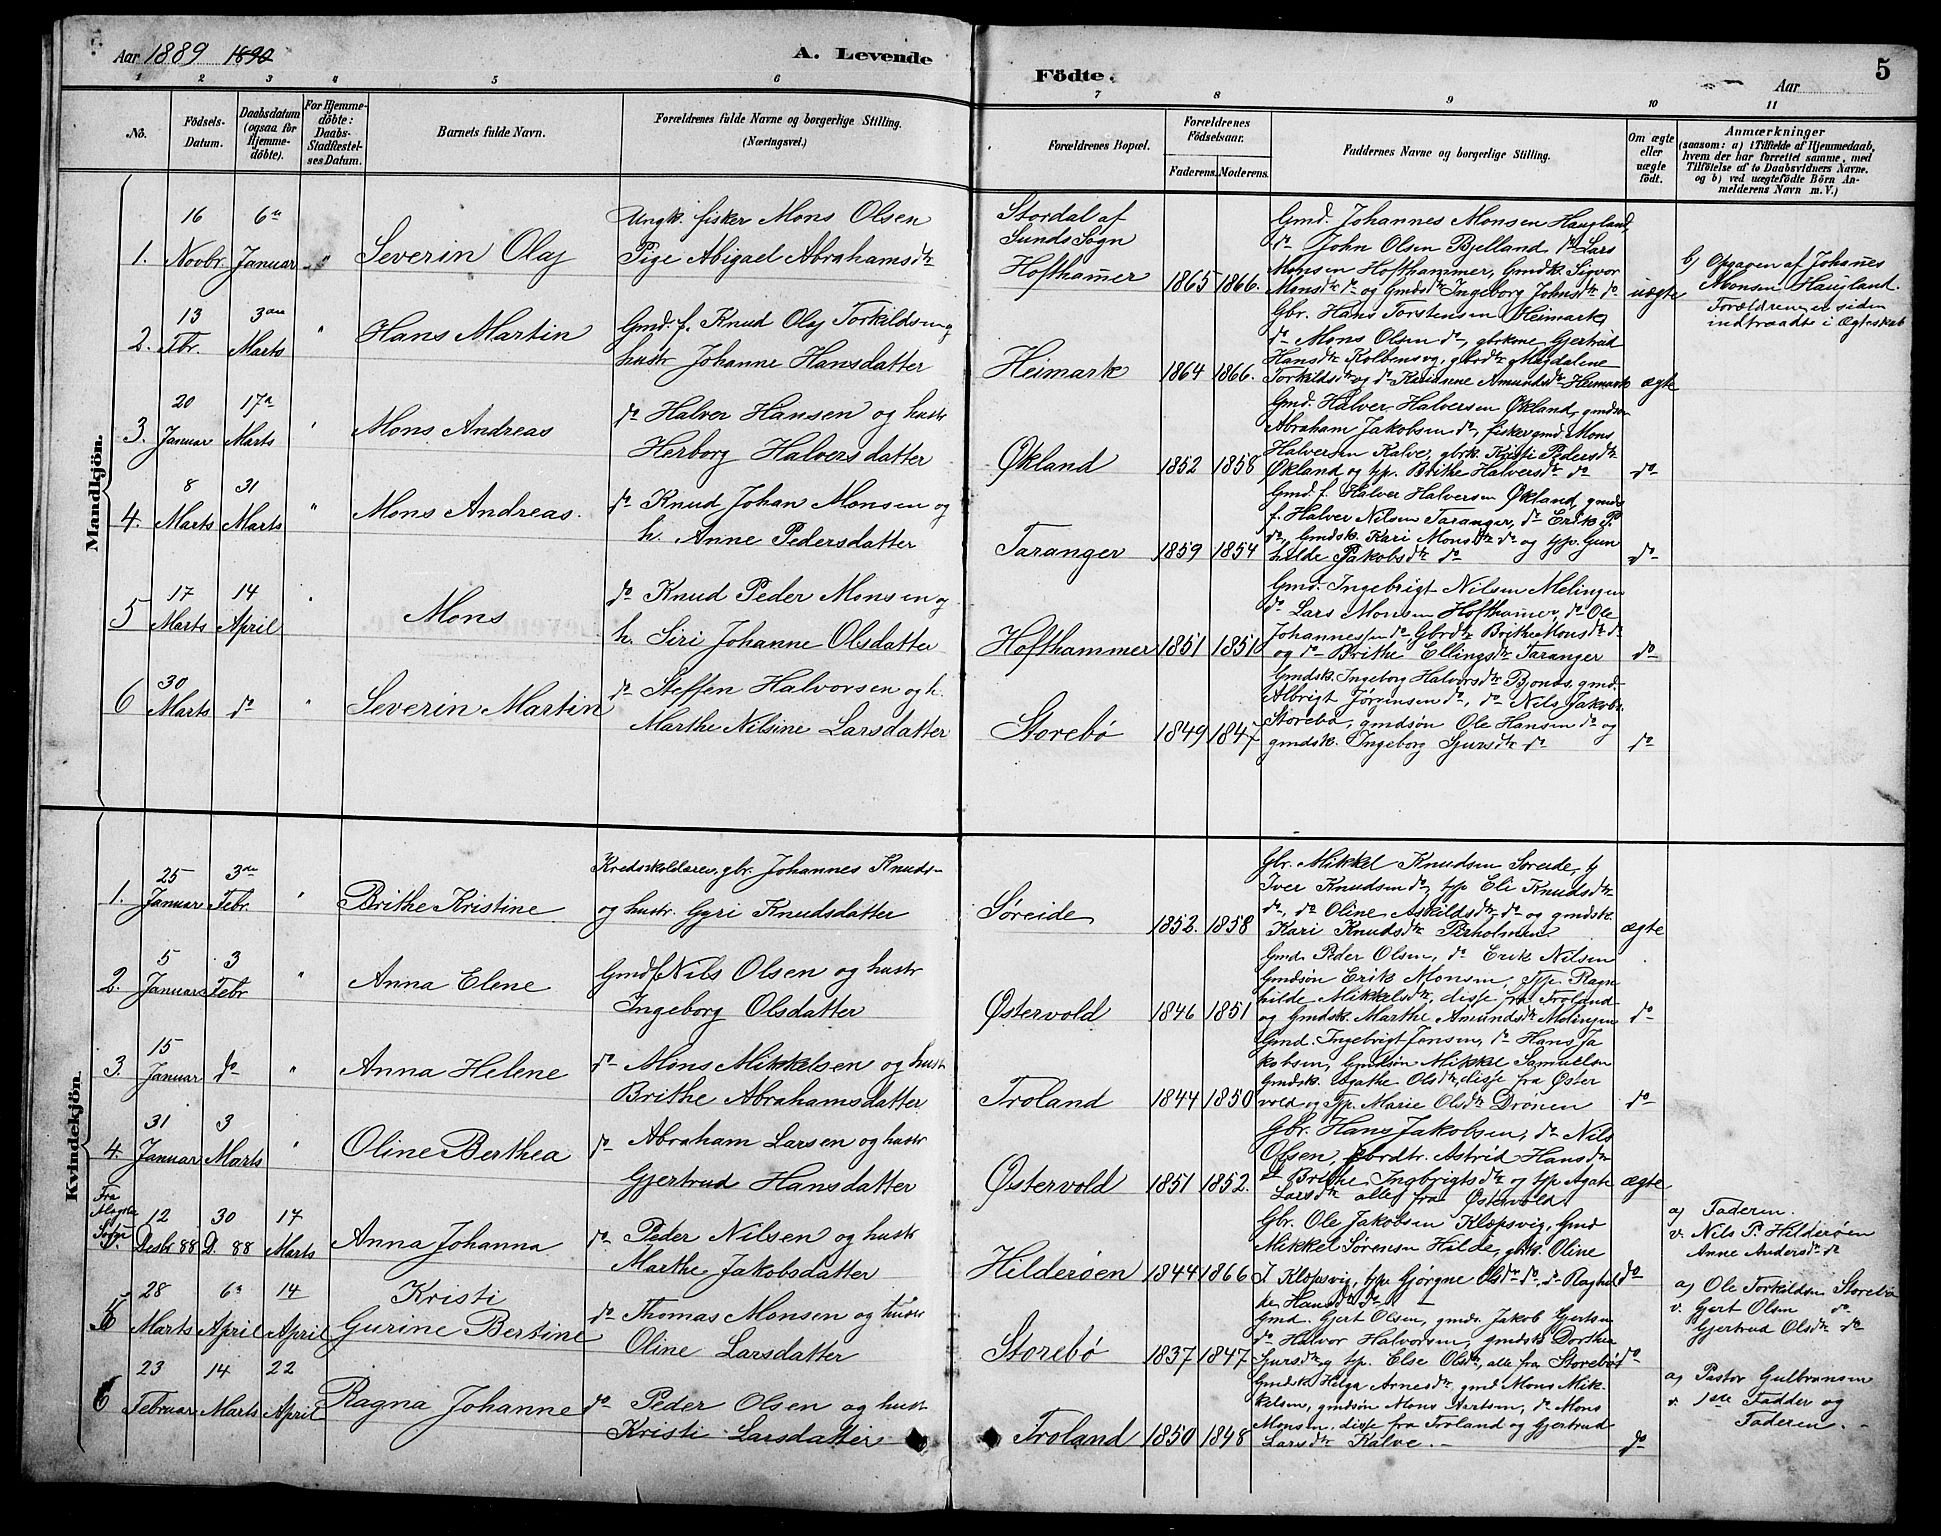 Aar 1889 1890
A. Levende Födte.
Aar
5
1 2 3 4 5 6 7 8 9 10 11
No.
Födsels-Datum.
Daabsdatum (ogsaa for Hjemme-döbte).
For Hjemme-döbte: Daabs-Stadfæstel-ses Datum.
Barnets fulde Navn.
Forældrenes fulde Navne og borgerlige Stilling. (Næringsvei.)
Forældrenes Bopæl.
Forældrenes Födselsaar.
Faderens. Moderens.
Faddernes Navne og borgerlige Stilling.
Om ægte eller uægte födt.
Anmærkninger
(saasom: a) i Tilfælde af Hjemmedaab,
hvem der har forrettet samme, med
Tilföielse af to Daabsvidners Navne,
og b) ved uægtefödte Börn An-
melderens Navn m. V.)
Mandkjön.
1. 16 Novbr. 6te Januar " Severin Olaj
Ungk. fisker Mons Olsen
Pige Abigael Abrahamsdtr
Stordal af
Sunds Sogn
Hofthammer 1865 1866.
Gmd. Johannes Monsen Haugland,
do John Olsen Bjelland, do Lars
Monsen Hofthammer, Gmdk. Sigvor
Monsdtr do og Gmdsdtr Ingeborg Johnsdtr do
uægte
b) Opgaven af Johannes
Monsen Haugland.
Forældrene er siden
indtraadte i Ægteskab
2. 13 Fbr. 3die Marts " Hans Martin
Gmd. f. Knud Olaj Torkildsen og
hustr Johanne Hansdatter
Heimark 1864 1866.
Gbr. Hans Torstensen Heimark,
do Mons Olsen do, gbrkone Gjertrud
Hansdtr Kolbensvg, gbrdtr Magdalene
Torkildsdtr og do Karianne Amundsdtr Heimark
ægte
3. 20 Januar 17de Marts " Mons Andreas
do Halver Hansen og hustr
Herborg Halversdatter
Økland 1852 1858
Gmd. Halver Halversen Økland, gmdsøn
Abraham Jakobsen do, fisker gmd. Mons
Halversen Kalve, gbrk. Kristi Pedersdtr
Økland og tp. Brithe Halversdtr do
do
4. 8 Marts 31 Marts " Mons Andreas.
do Knud Johan Monsen og
h. Anne Pedersdatter
Taranger 1859 1854
Gmd. f. Halver Halversen Økland, gmds
f. Halver Nilsen Taranger, do Erik P.
do, Gmdsk. Kari Monsdtr do og tp. Gun
hilde Jakobsdtr do
do
5 17 Marts 14 April " Mons
do Knud Peder Monsen og
h. Siri Johanne Olsdatter
Hofthammer 1851 1851
Gmd. Ingebrigt Nilsen Melingen
do Lars Monsen Hofthamer, do Ole
Johannessen do, Gbrdtr Brithe Monsdtr do
og do Brithe Ellingsdtr Taranger
do
6 30 Marts do " Severin Martin
do Steffen Halvorsen og h.
Marthe Nilsine Larsdatter
Storebø 1849 1847
Gmdsk. Ingeborg Halvorsdtr Bjonæs, gmd.
Albrigt Jørgensen do, do Nils Jakobs.
Storebø, gmdsøn Ole Hansen do og
gmdsk. Ingeborg Sjursdtr do
do
Kvindekjön.
1. 25 Januar 3die Febr. " Brithe Kristine
Kredsskolelærer, gbr. Johannes Knuds-
og hustr. Gyri Knudsdatter
Søreide 1852. 1858
Gbr. Mikkel Knudsen Søreide, G
Iver Knudsen do, tp Eli Knudsdtr
do, do Oline Askildsdtr do og gmdsk.
Kari Knudsdtr Perholmen
ægte
2. 5 Januar 3 Febr " Anna Elene
Gmd f Nils Olsen og hustr
Ingeborg Olsdatter
Østervold 1846 1851
Gmd. Peder Olsen, do Erik Nilsen
Gmdsøn Erik Monsen, Tp. Ragn
hilde Mikkelsdtr, disse fra Troland
og Gmdsk. Marthe Amundsdtr Melingen
do
3. 15 Januar do " Anna Helene
do Mons Mikkelsen og hustr
Brithe Abrahamsdatter
Troland 1844 1850
Gmd. Ingebrigt Jonsen, do Hans Ja
kobsen, Gmdsøn Mikkel Samuelsen
Gmdsk. Agathe Olsdtr, disse fra Øster
vold og Tp. Marie Olsdtr Drönen
do
4. 31 Januar 3 Marts " Oline Berthea
do Abraham Larsen og hustr
Gjertrud Hansdatter
Østervold 1851 1852.
Gbr. Hans Jakobsen, do Nils
Olsen, gbrdtr. Astrid Hansdtr
do Brithe Ingbrigtsdtr og tp Agate
Larsdtr alle fra Østervold
ægte
Fra
Sogn
5. 12 Desbr 88 30 D. 88 17 Marts Anna Johanna
do Peder Nilsen og hustr
Marthe Jakobsdatter
Hilderøen 1844 1866
Gbr. Ole Jakobsen Klæpsvig, Gmd
Mikkel Sørensen Hilde, gbrk. Oline
J Klæpsvig, tp. Gjörgne Olsdtr do, do Raghil
de Hansdtr do
do
a) Faderen.
v. Nils P. Hilderøen
Anne Andersdtr do
5 28 Marts 6te April 14 April Kristi
Gurine Bertine
do Thomas Monsen og hustr
Oline Larsdatter
Storebø 1837 1847
Gmd. Gjert Olsen, gmds. Jakob Gjertsen
do Halvor Halvorsen, gmdsk Dorthea
Sjursdtr og tp. Else Olsdtr, alle fra Storebø
do
a) Ole Torkildsen Storebø
v. Gjert Olsen do
Gjertrud Olsdtr do
6 23 Februar 14 Marts 22 April Ragna Johanne
do Peder Olsen og hustr
Kristi Larsdatter
Troland 1850 1848
Gmdsk Helga Arnesdtr, gmd Mons Mik-
kelsen, gmdsøn Mons Aartsen, do Mons
Monsen, disse fra Troland og Gjertrud
Larsdtr Kalve. -
do
a) Pastor Gulbransen
v. 1ste Fadder og
Faderen. -